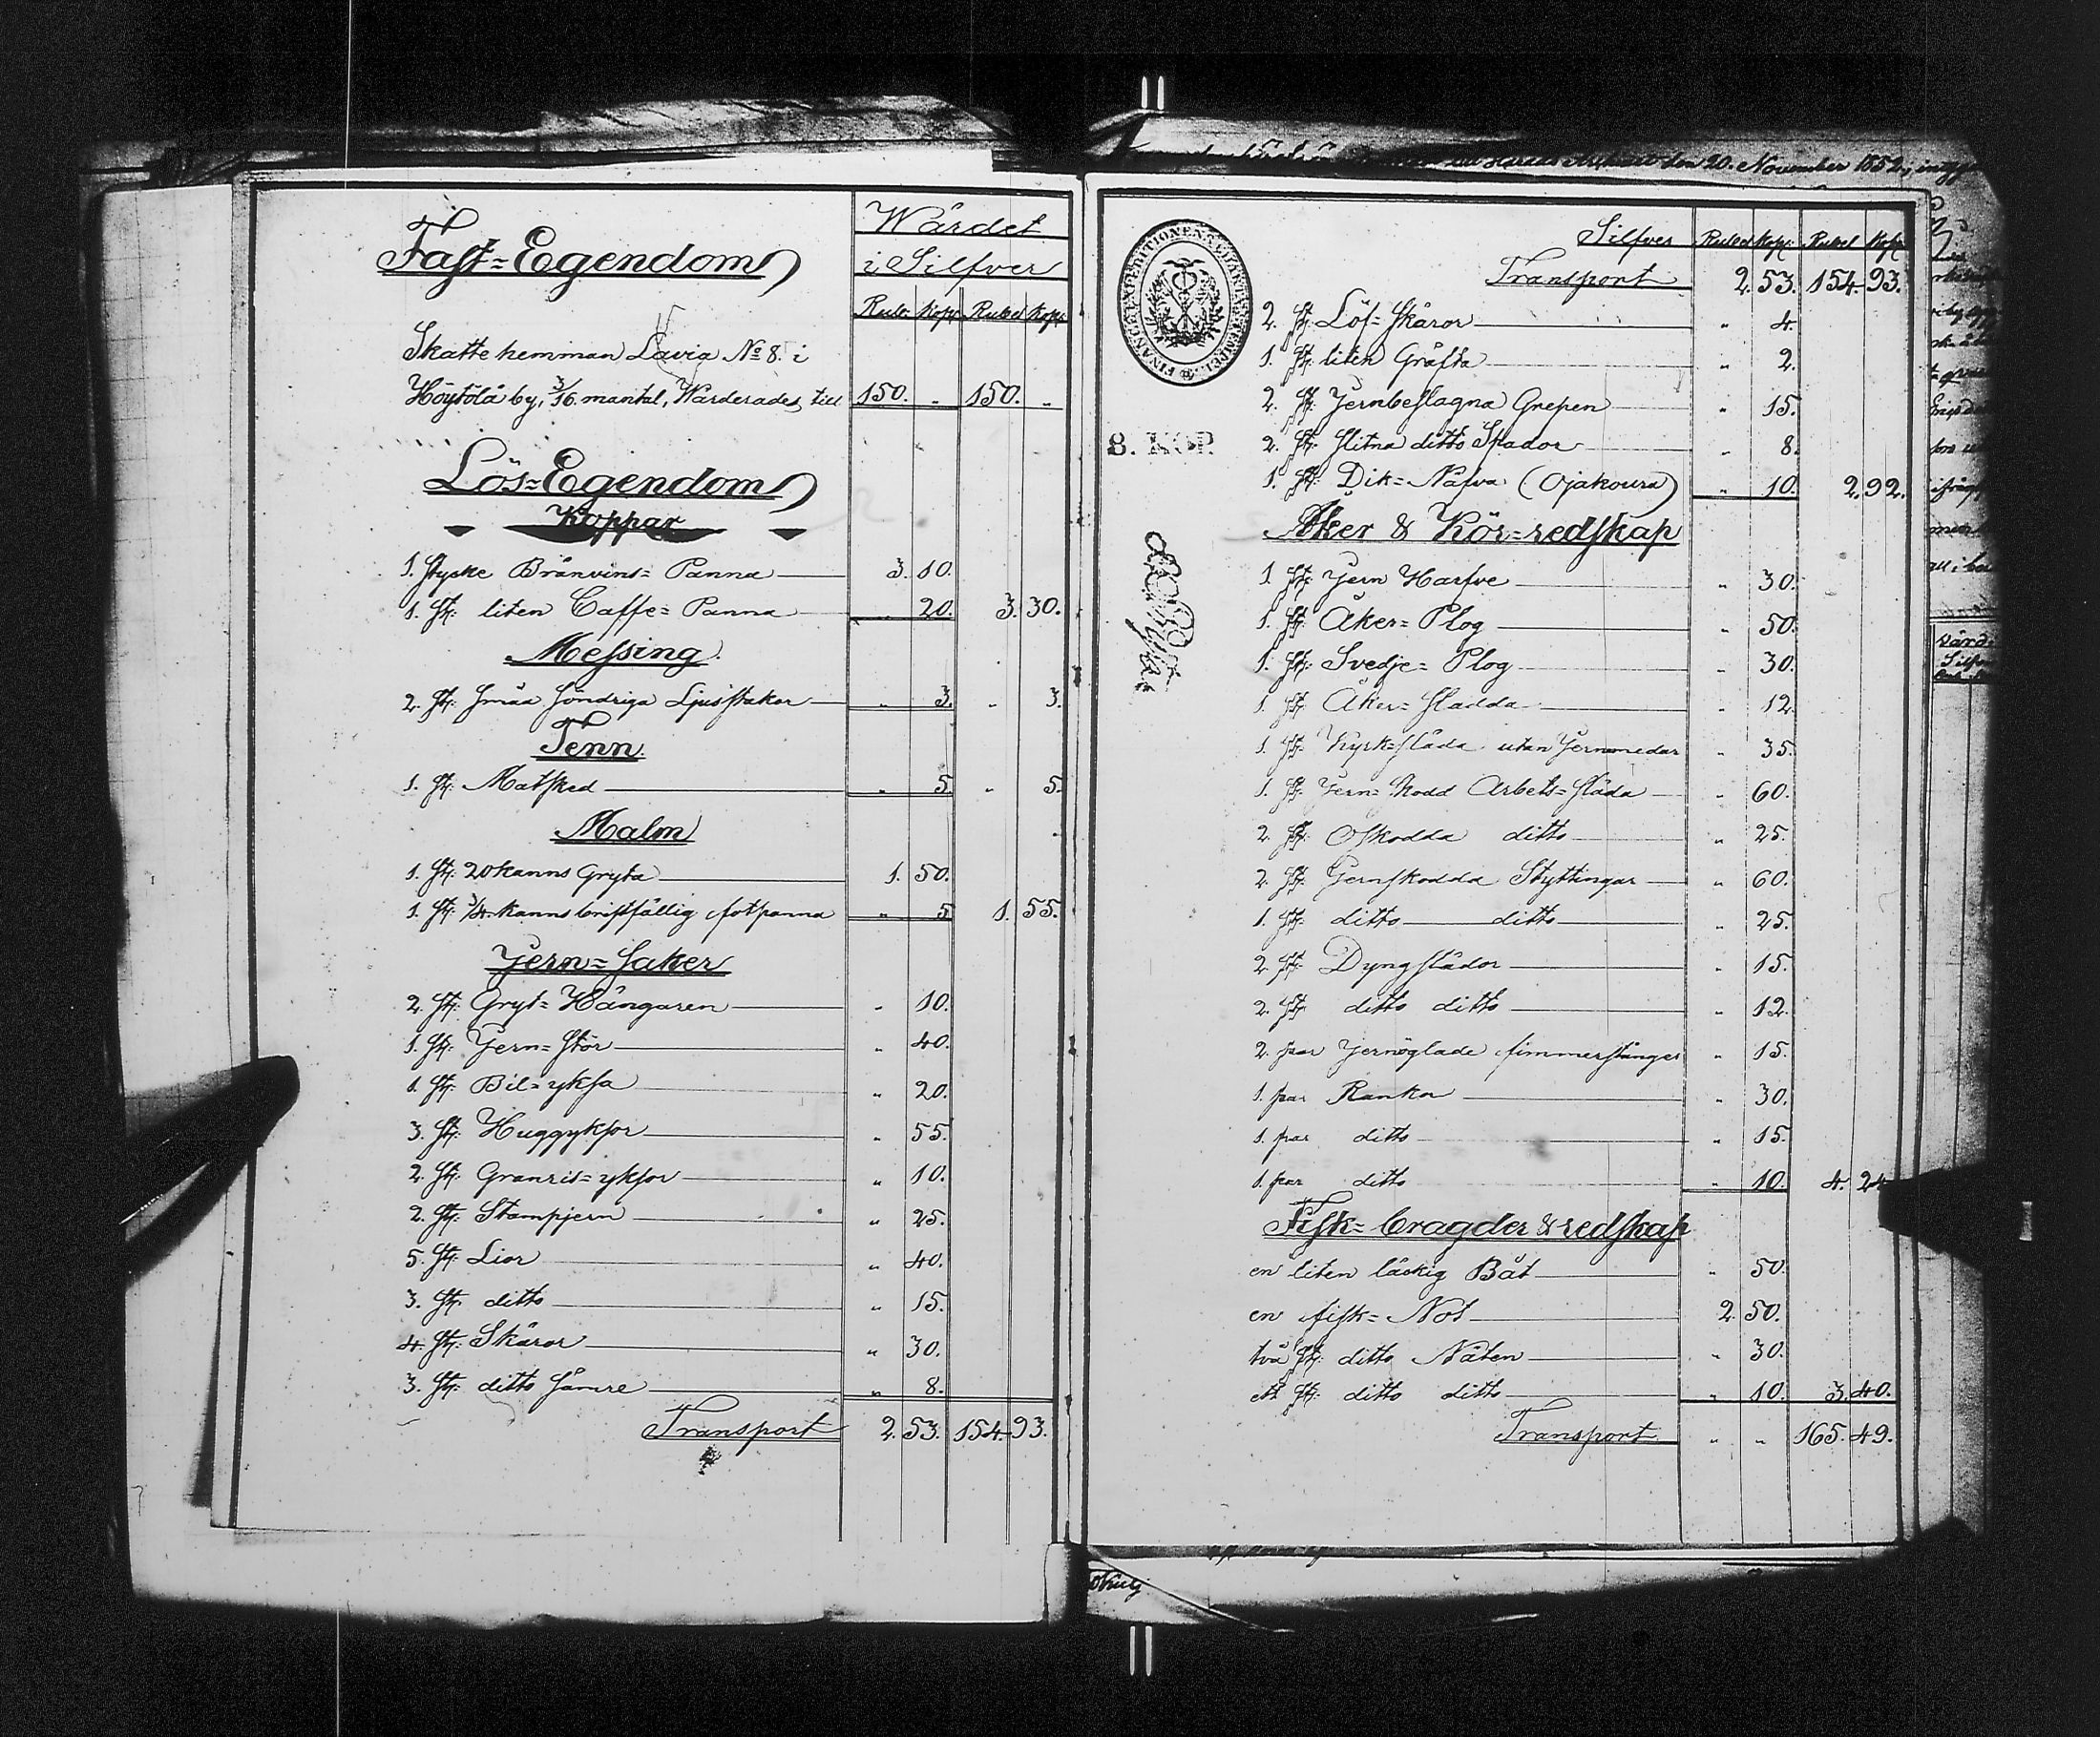 Fast=Egendom
Wärdet
i Silfver
Rub: Kop: Rubel Kop:
Skatte hemman Lavia No 8. i
Höytölä by, 3/16. mantal, Wärderades till 150. „ 150. „
Lös=Egendom
Koppar
1. Stycke Bränvins= Panna 3. 10.
1. St: liten Caffe= Panna „ 20. 3. 30.
Messing
2. St: Smáa Söndriga Ljusstakar „ 3. „ 3.
Tenn.
1. St: Matsked „ 5. „ 5.
Malm
1. St: 20 kanns Gryta 1. 50.
1. St: 3/4. kanns bristfällig fotpanna „ 5 1. 55.
Jern=Saker
2. St: Gryt=Hängaren „ 10.
1. St: Jern=Stör „ 40.
1. St: Bil=yksa „ 20.
3. St: Huggyksor „ 55.
2. St: Granris=yksor „ 10.
2. St: Stampjern „ 25.
5. St: Lior „ 40.
3. St: ditto „ 15.
4. St: Skäror „ 30.
3. St: ditto Sämre „ 8.
Transport 2. 53. 154. 93.
den 20. November 1852,
FINANCE EXPEDITIONENS CHARTÆ STEMPEL
8. KOP.
Silfver Rubel Kop: Rubel Kop:
Transport 2. 53. 154. 93.
2. St: Löf=Skäror „ 4.
1. St: liten Gräfta „ 2.
2. St: Jernbeslagna Grepen „ 15.
2. St: Slitna ditto Spador „ 8.
1. St: Dik=Näfva (Ojakoura) „ 10. 2. 92.
Åker & Kör=redskap
1 St: Jern Harfve „ 30.
1. St: Åker= Plog „ 50.
1. St: Svedje= Plog „ 30.
1. St: Åker=Sladda „ 12.
1. St: Kyrk=släda utan Jernmedar „ 35.
1. St: Jern=Skodd Arbets=släda „ 60.
2. St: Oskodda ditto „ 25.
2. St: Jernskodda Styttingar „ 60.
1. St: ditto ditto „ 25.
2 St: Dyngslädor „ 15.
2. St: ditto ditto „ 12.
2. par Jernöglade fimmerstänger „ 15.
1. par Rankor „ 30.
1. par ditto „ 15.
1. par ditto „ 10. 4. 24.
Fisk=bragder & redskap
en liten läckig Båt „ 50.
en fisk= Not 2. 50.
två St: ditto Näten „ 30.
ett St: ditto ditto „ 10. 3. 40.
Transport „ „ 165. 49.